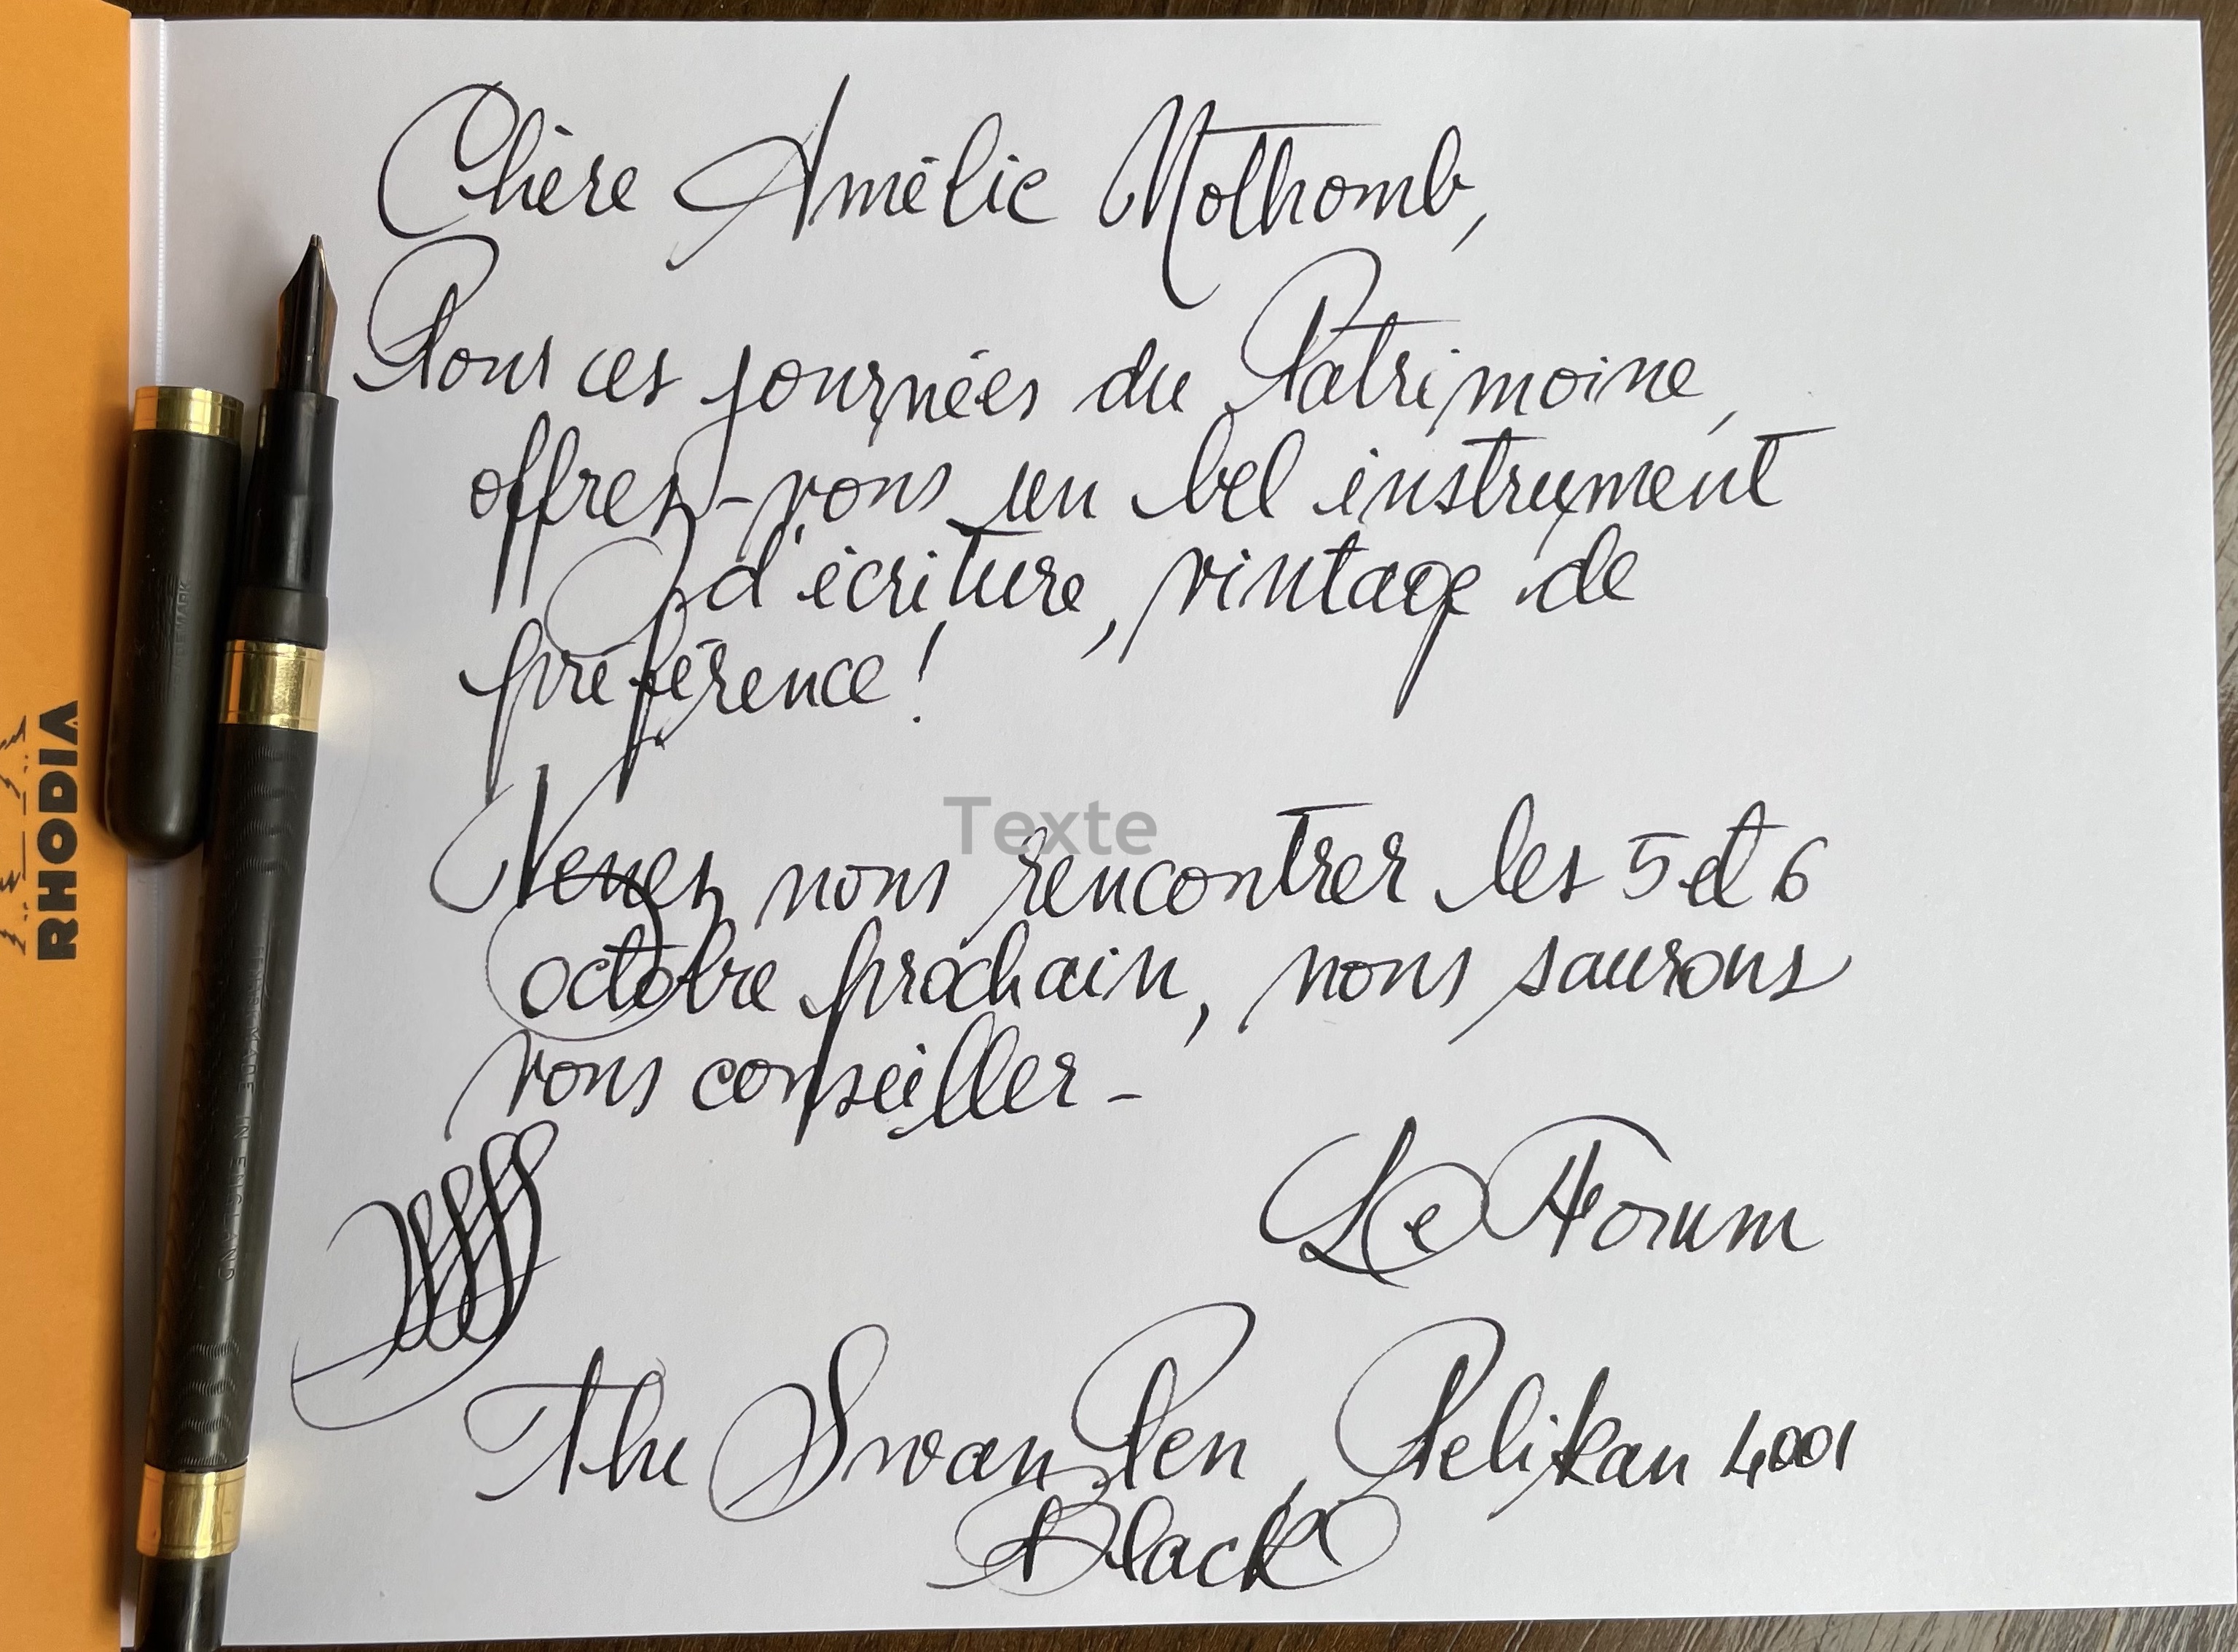 Chère Amélie Nothomb,
Pour ces journées du Patrimoine,
offrez-vous un bel instrument
d'écriture, vintage de
préférence!
Texte
Venez nous rencontrer les 5 et 6
octobre prochain, nous saurons
vous conseiller -
Le Forum
The Swan Pen, Pelikan 4001
Black
RHODIA